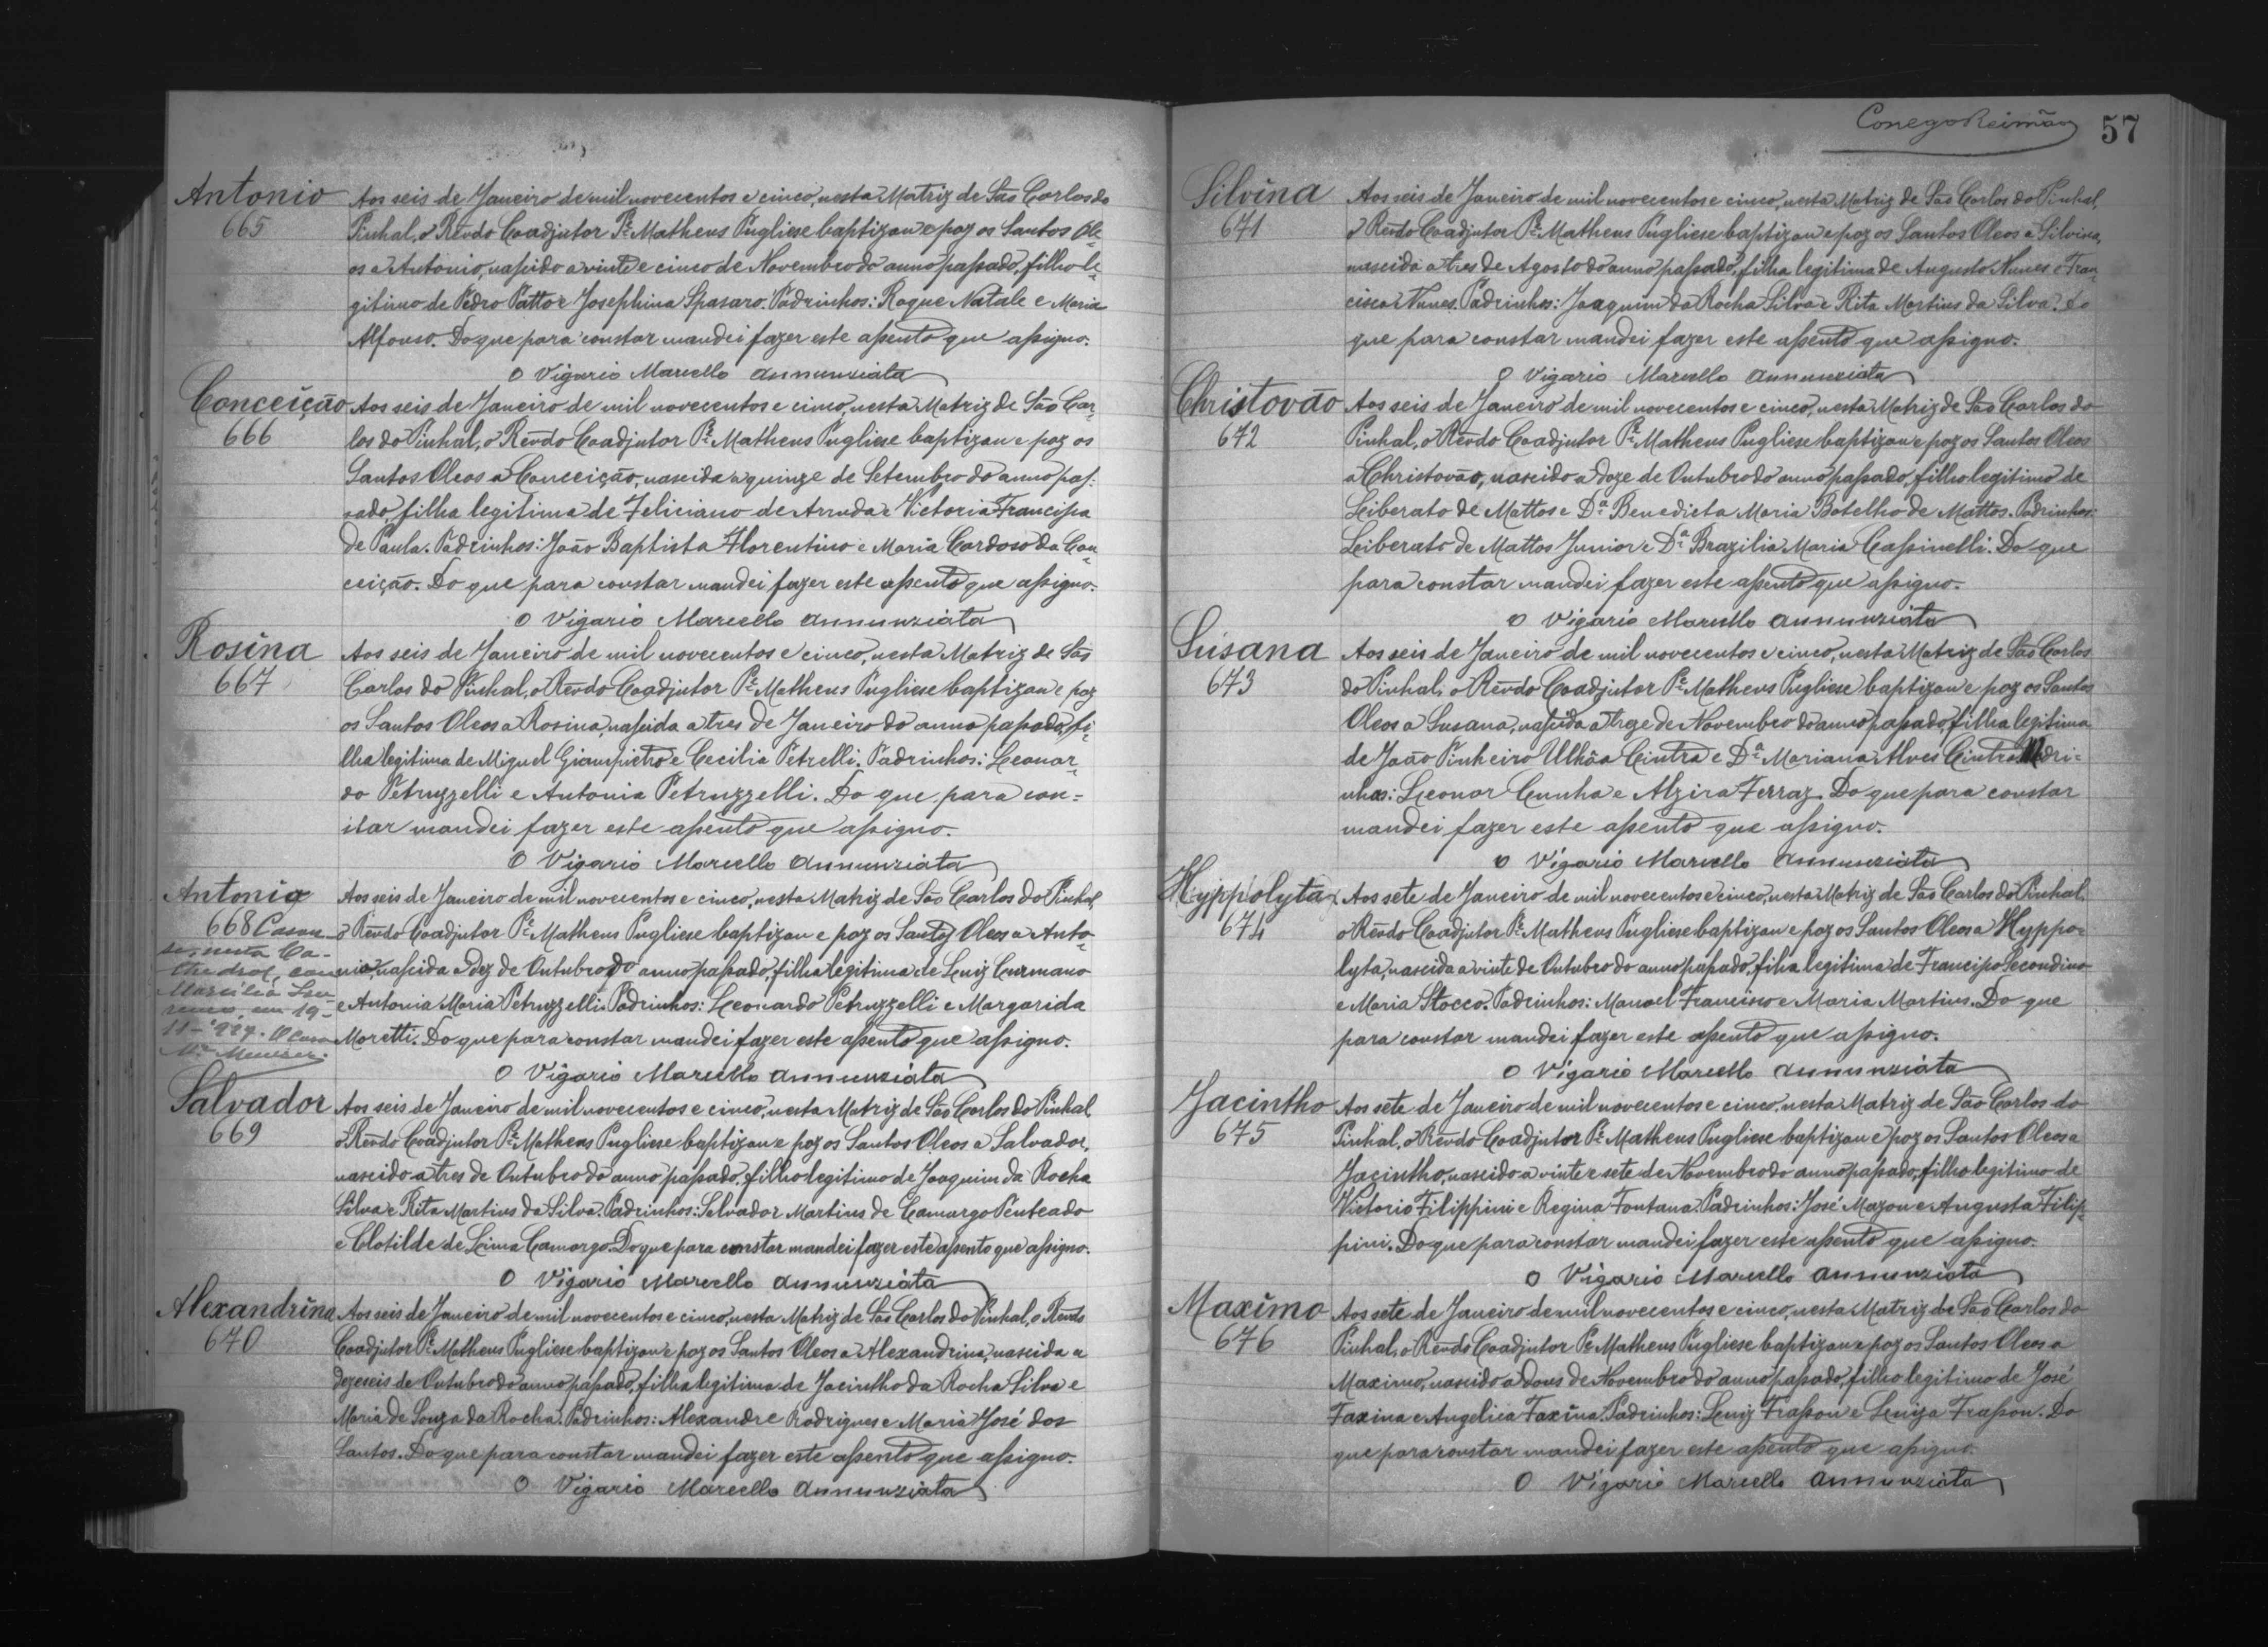 Antonio
665
Aos seis de Janeiro de mil novecentos e cinco, nesta Matriz de São Carlos do
Pinhal, o Revdo Coadjutor Pe. Matheus Pugliese baptizou e poz os Santos Ole-
os a Antonio, nascido a vinte e cinco de Novembro do anno passado, filho le-
gitimo de Pedro Patto e Josephina Spasaro. Padrinhos: Roque Natale e Maria
Alfonso. Do que para constar mandei fazer este assento que assigno.
O Vigario Marcello Annunziata
Conceição
666
Aos seis de Janeiro de mil novecentos e cinco, nesta Matriz de São Car-
los do Pinhal, o Revdo Coadjutor Pe. Matheus Pugliese baptizou e poz os
Santos Oleos a Conceição, nascida a quinze de Setembro do anno pas-
sado, filha legitima de Feliciano de Arruda e Victoria Francisca
de Paula. Padrinhos: João Baptista Florentino e Maria Cardoso da Con-
ceição. Do que para constar mandei fazer este assento que assigno.
O Vigario Marcello Annunziata
Rosina
667
Aos seis de Janeiro de mil novecentos e cinco, nesta Matriz de São
Carlos do Pinhal, o Revdo Coadjutor Pe. Matheus Pugliese baptizou e poz
os Santos Oleos a Rosina, nascida a tres de Janeiro do anno passado, fi-
lha legitima de Miguel Giampietro e Cecilia Petrelli. Padrinhos: Leonar-
do Petruzzelli e Antonia Petruzzelli. Do que para con-
star mandei fazer este assento que assigno.
O Vigario Marcello Annunziata
Antonia
668 Casou-
se, nesta Ca-
thedral, com
Marcilio
em 19-
11-927. O Cura
Aos seis de Janeiro de mil novecentos e cinco, nesta Matriz de São Carlos do Pinhal,
o Revdo Coadjutor Pe. Matheus Pugliese baptizou e poz os Santos Oleos a Anto-
nia, nascida a dez de Outubro do anno passado, filha legitima de Luiz Curmano
e Antonia Maria Petruzzelli. Padrinhos: Leonardo Petruzzelli e Margarida
Moretti. Do que para constar mandei fazer este assento que assigno.
O Vigario Marcello Annunziata
Salvador
669
Aos seis de Janeiro de mil novecentos e cinco, nesta Matriz de São Carlos do Pinhal,
o Revdo Coadjutor Pe. Matheus Pugliese baptizou e poz os Santos Oleos a Salvador,
nascido a tres de Outubro do anno passado, filho legitimo de Joaquim da Rocha
Silva e Rita Martins da Silva. Padrinhos: Salvador Martins de Camargo Penteado
e Clotilde de Lima Camargo. Do que para constar mandei fazer este assento que assigno.
O Vigario Marcello Annunziata
Alexandrina
670
Aos seis de Janeiro de mil novecentos e cinco, nesta Matriz de São Carlos do Pinhal, o Revdo
Coadjutor Pe. Matheus Pugliese baptizou e poz os Santos Oleos a Alexandrina, nascida a
dezeseis de Outubro do anno passado, filha legitima de Jacintho da Rocha Silva e
Maria de Souza da Rocha. Padrinhos: Alexandre Rodrigues e Maria José dos
Santos. Do que para constar mandei fazer este assento que assigno.
O Vigario Marcello Annunziata
Conego Reimão
57
Silvina
671
Aos seis de Janeiro de mil novecentos e cinco, nesta Matriz de São Carlos do Pinhal,
o Revdo Coadjutor Pe. Matheus Pugliese baptizou e poz os Santos Oleos a Silvina,
nascida a tres de Agosto do anno passado, filha legitima de Augusto Nunes e Fran-
cisca Nunes. Padrinhos: Joaquim da Rocha Silva e Rita Martins da Silva. Do
que para constar mandei fazer este assento que assigno.
O Vigario Marcello Annunziata
Christovão
672
Aos seis de Janeiro de mil novecentos e cinco, nesta Matriz de São Carlos do
Pinhal, o Revdo Coadjutor Pe. Matheus Pugliese baptizou e poz os Santos Oleos
a Christovão, nascido a doze de Outubro do anno passado, filho legitimo de
Liberato de Mattos e Da. Benedicta Maria Botelho de Mattos. Padrinhos:
Liberato de Mattos Junior e Da. Brazilia Maria Cassinelli. Do que
para constar mandei fazer este assento que assigno.
O Vigario Marcello Annunziata
Susana
673
Aos seis de Janeiro de mil novecentos e cinco, nesta Matriz de São Carlos
do Pinhal, o Revdo Coadjutor Pe. Matheus Pugliese baptizou e poz os Santos
Oleos a Susana, nascida a treze de Novembro do anno passado, filha legitima
de João Pinheiro Ulhôa Cintra e Da. Mariana Alves Cintra. Madri-
nhas: Leonor Cunha e Alzira Ferraz. Do que para constar
mandei fazer este assento que assigno.
O Vigario Marcello Annunziata
Hyppolyta
674
Aos sete de Janeiro de mil novecentos e cinco, nesta Matriz de São Carlos do Pinhal,
o Revdo Coadjutor Pe. Matheus Pugliese baptizou e poz os Santos Oleos a Hyppo-
lyta, nascida a vinte de Outubro do anno passado, filha legitima de Francisco Secondino
e Maria Stocco. Padrinhos: Manoel Francisco e Maria Martins. Do que
para constar mandei fazer este assento que assigno.
O Vigario Marcello Annunziata
Jacintho
675
Aos sete de Janeiro de mil novecentos e cinco, nesta Matriz de São Carlos do
Pinhal, o Revdo Coadjutor Pe. Matheus Pugliese baptizou e poz os Santos Oleos a
Jacintho, nascido a vinte e sete de Novembro do anno passado, filho legitimo de
Victorio Filippini e Regina Fontana. Padrinhos: José Mazon e Augusta Filip-
pini. Do que para constar mandei fazer este assento que assigno.
O Vigario Marcello Annunziata
Maximo
676
Aos sete de Janeiro de mil novecentos e cinco, nesta Matriz de São Carlos do
Pinhal, o Revdo Coadjutor Pe Matheus Pugliese baptizou e poz os Santos Oleos a
Maximo, nascido a dous de Novembro do anno passado, filho legitimo de José
Faxina e Angelica Faxina. Padrinhos: Luiz Frasson e Luiza Frasson. Do
que para constar mandei fazer este assento que assigno.
O Vigario Marcello Annunziata